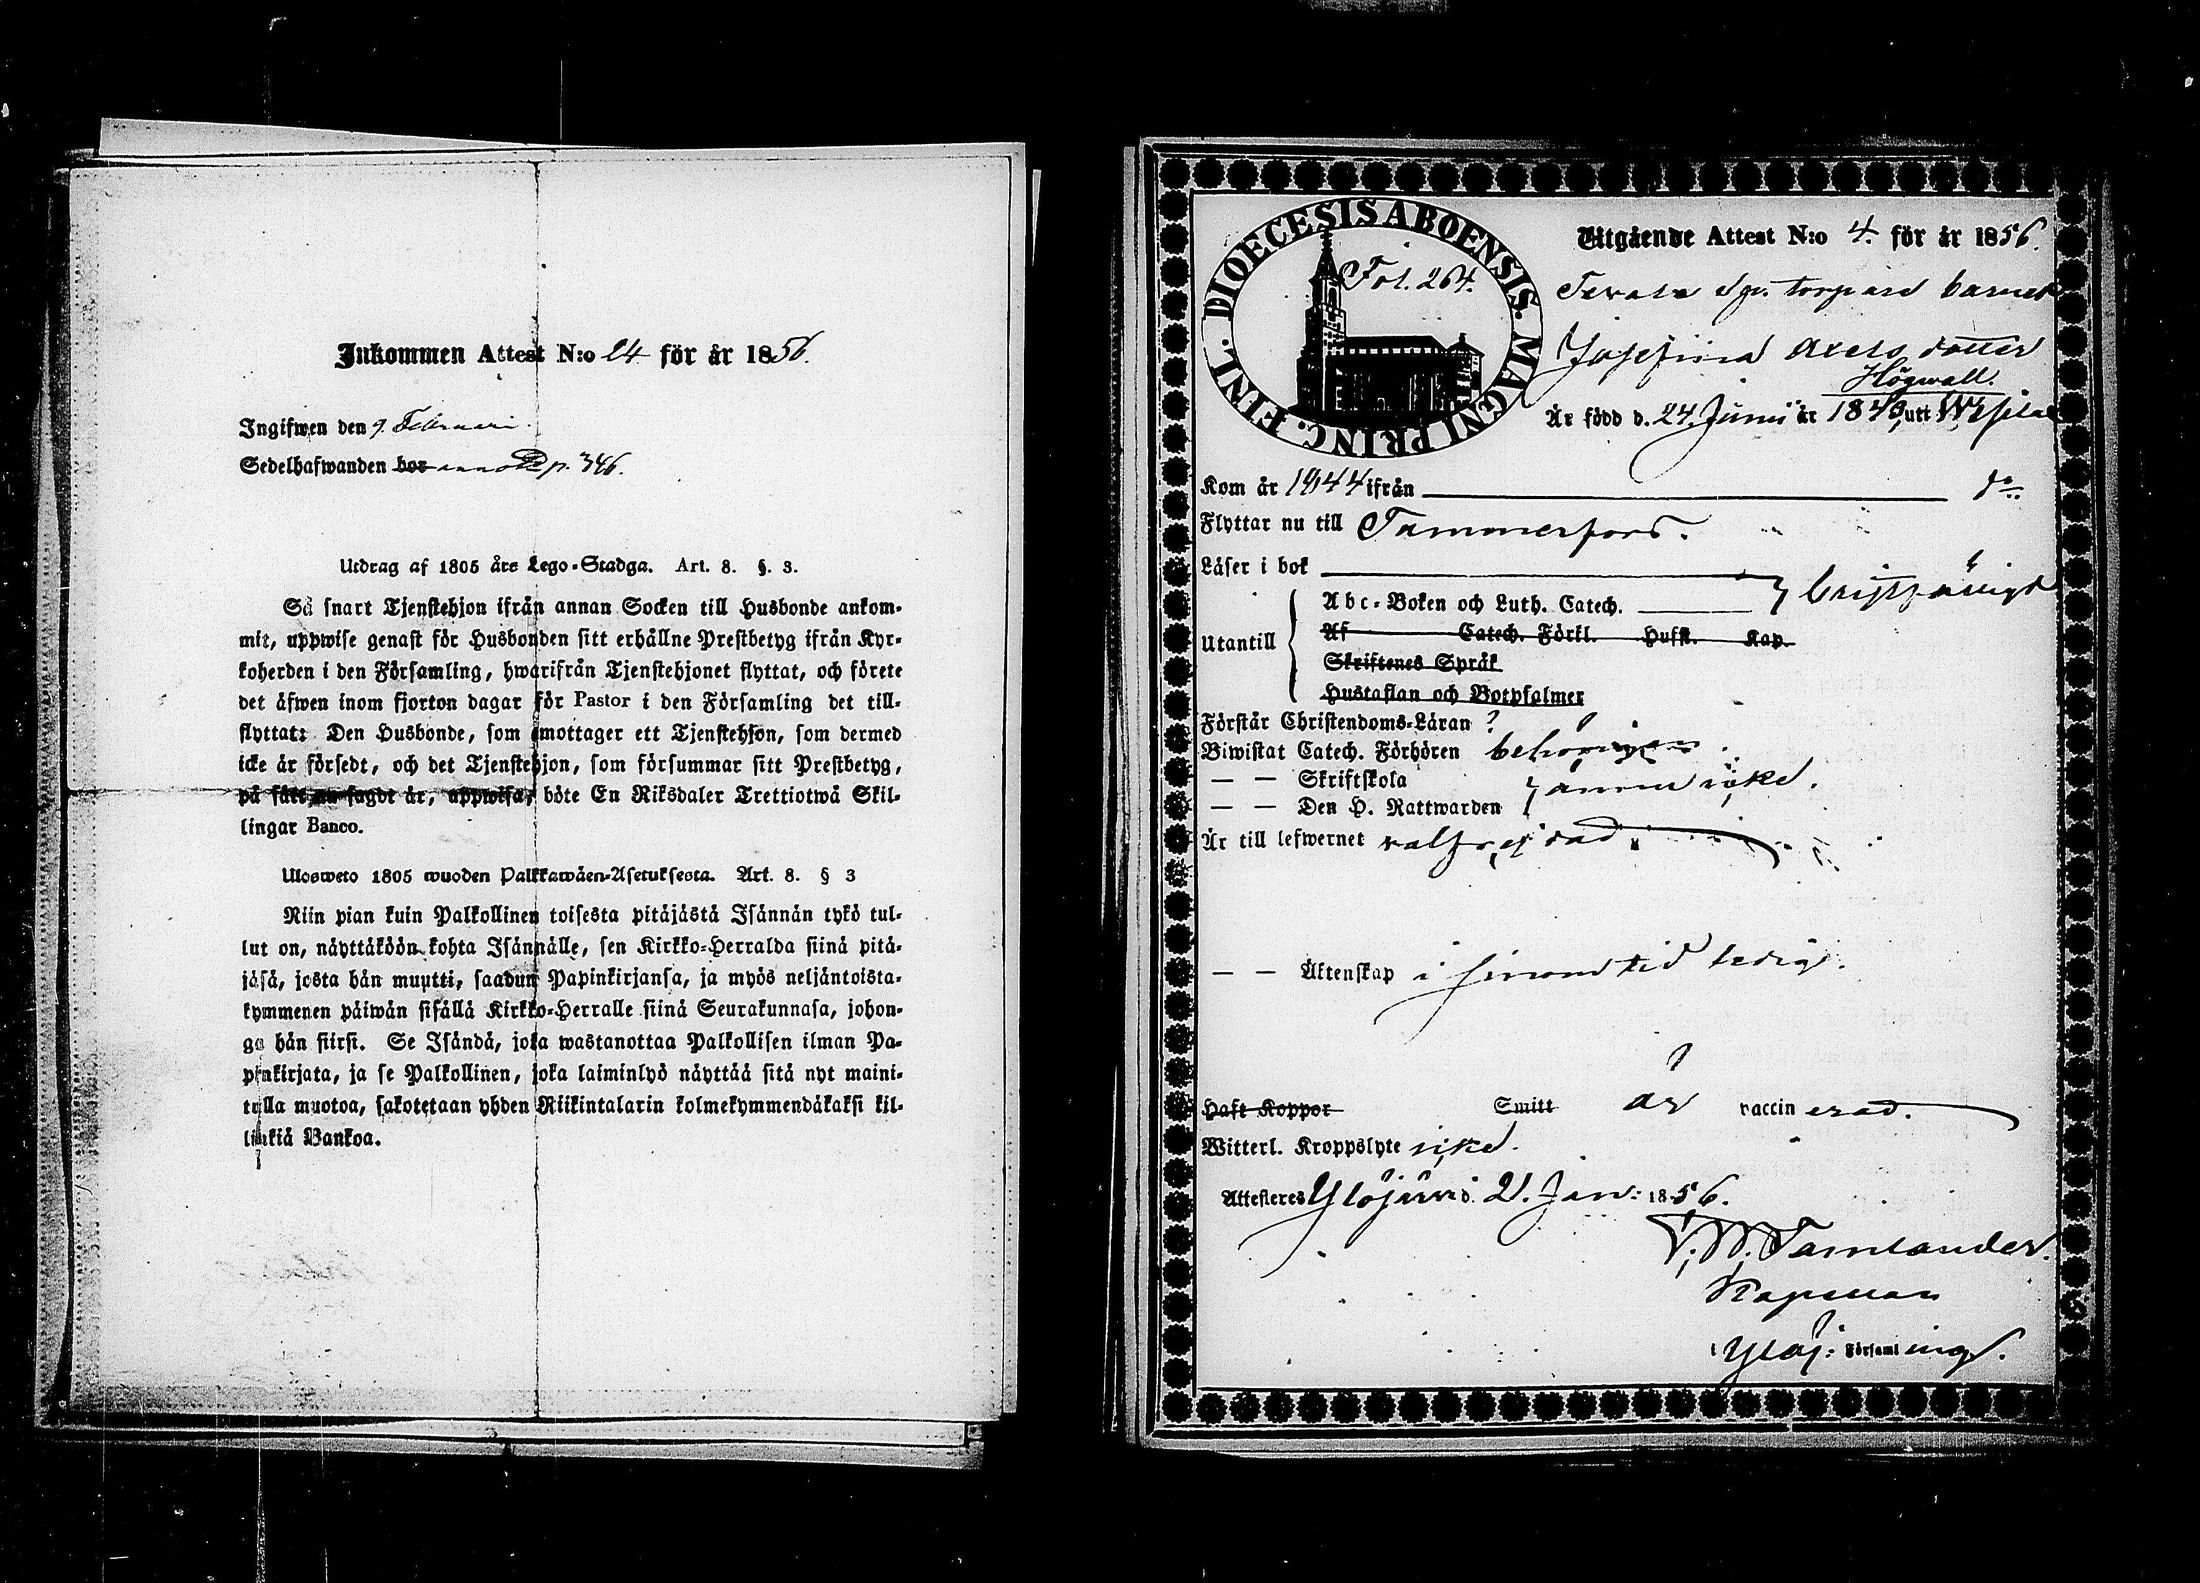 Inkommen Attest N:o 24 för år 1856.
Ingifwen den 9 Februari
Sedelhafwanden bor annot p. 346.
Utdrag af 1805 års Lego-Stadga. Art. 8. §. 3.
Så snart Tjenstehjon ifrån annan Socken till Husbonde ankom-
mit, uppwise genast för Husbonden sitt erhållne Prestbetyg ifrån Kyr-
koherden i den Församling, hwarifrån Tjenstehjonet flyttat, och förete
det äfwen inom fjorton dagar för Pastor i den Församling det till-
flyttat: Den Husbonde, som emottager ett Tjenstehjon, som dermed
icke är försedt, och det Tjenstehjon, som försummar sitt Prestbetyg,
på sätt nu sagdt är, uppwisa, böte En Riksdaler Trettiotwå Skil-
lingar Banco.
Ulosweto 1805 wuoden Palkkawäen-Asetuksesta. Art. 8. § 3
Niin pian kuin Palkollinen toisesta pitäjästä Isännän tykö tul-
lut on, näyttäköön kohta Isännälle, sen Kirkko-Herralda siinä pitä-
jäsä, josta hän muutti, saadun Papinkirjansa, ja myös neljäntoista-
kymmenen päiwän sisällä Kirkko-Herralle siinä Seurakunnasa, johon-
ga hän siirsi. Se Isändä, joka wastanottaa Palkollisen ilman Pa-
pinkirjata, ja se Palkollinen, joka laiminlyö näyttää sitä nyt maini-
tulla muotoa, sakotetaan yhden Riikintalarin kolmekymmendäkaksi kil-
linkiä Bankoa.
DIOECESIS ABOENSIS. MAGNI PRINC. FINL.
Fol. 264.
Utgående Attest N:o 4. för år 1856.
torpare barnet
Josefina Axels dotter
Högwall.
Är född d. 24 Junii år 1843, utt
Kom år 1844 ifrån d:o
Flyttar nu till Tammerfors.
Läser i bok
Utantill
Abc-Boken och Luth. Catech.
Af Catech. Förkl. Hufst. Kap.
Skriftenes Språk
Hustaflan och Botpsalmer
Förstår Christendoms-Läran
Biwistat Catech. Förhören behörigen
— — Skriftskola
— — Den H. Nattwarden ännu icke.
Är till lefwernet
— — Äktenskap i sinom tid ledig.
Haft Koppor Smitt är vaccinerad.
Witterl. Kroppslyte icke.
Attesteras Ylöjärvi d. 21. Jan: 1856.
Kapellan
i Ylöj: Församlings.